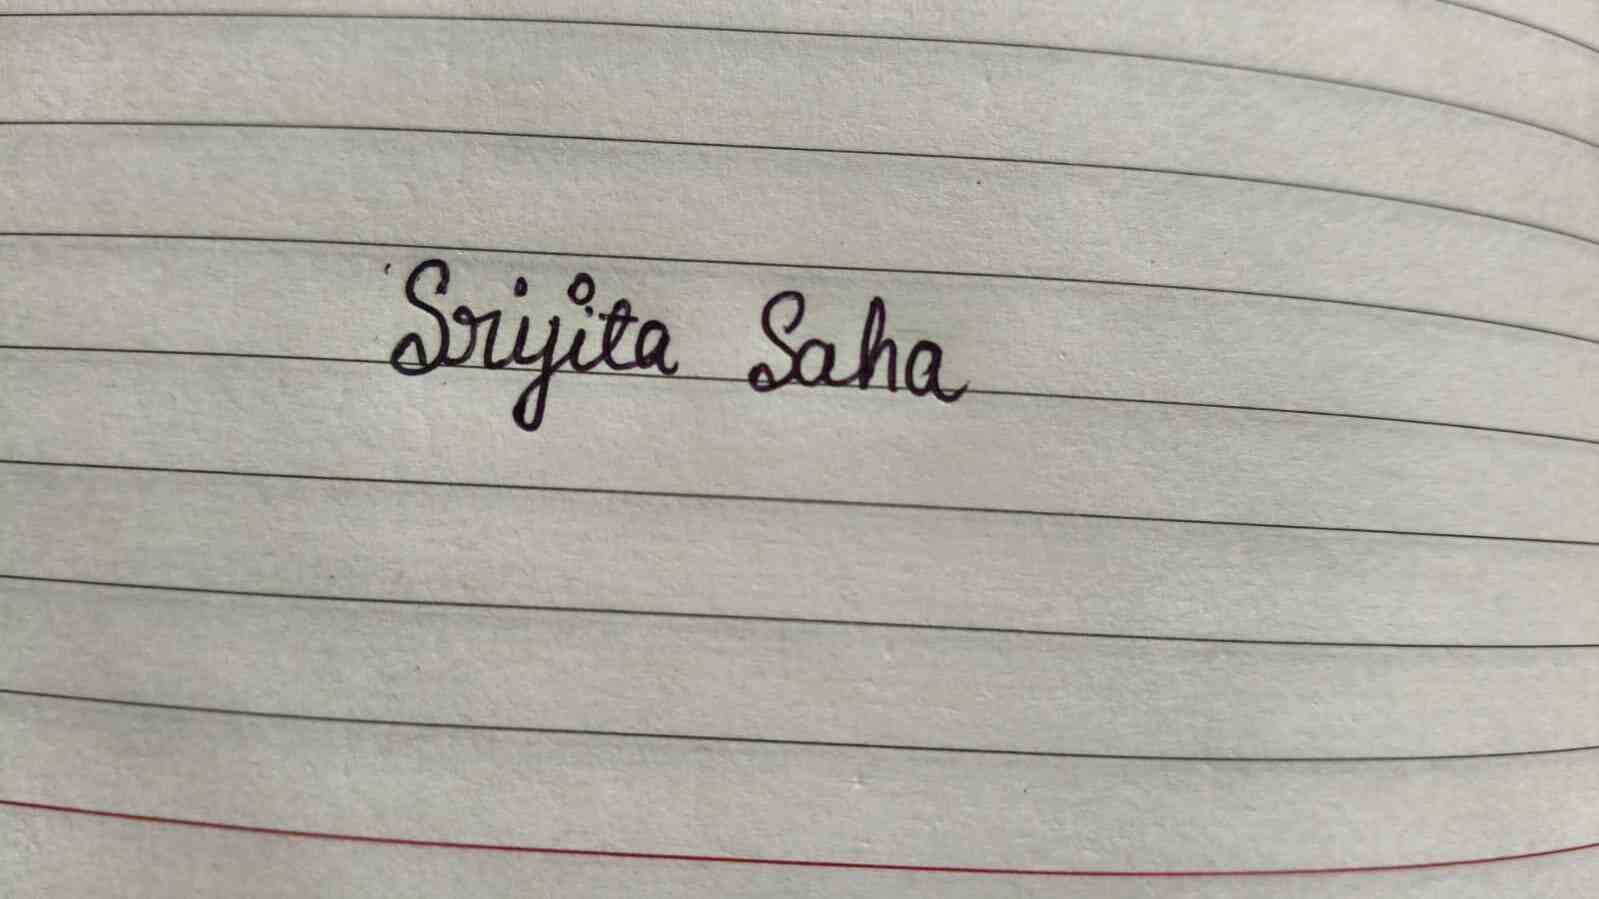 Srijita Saha